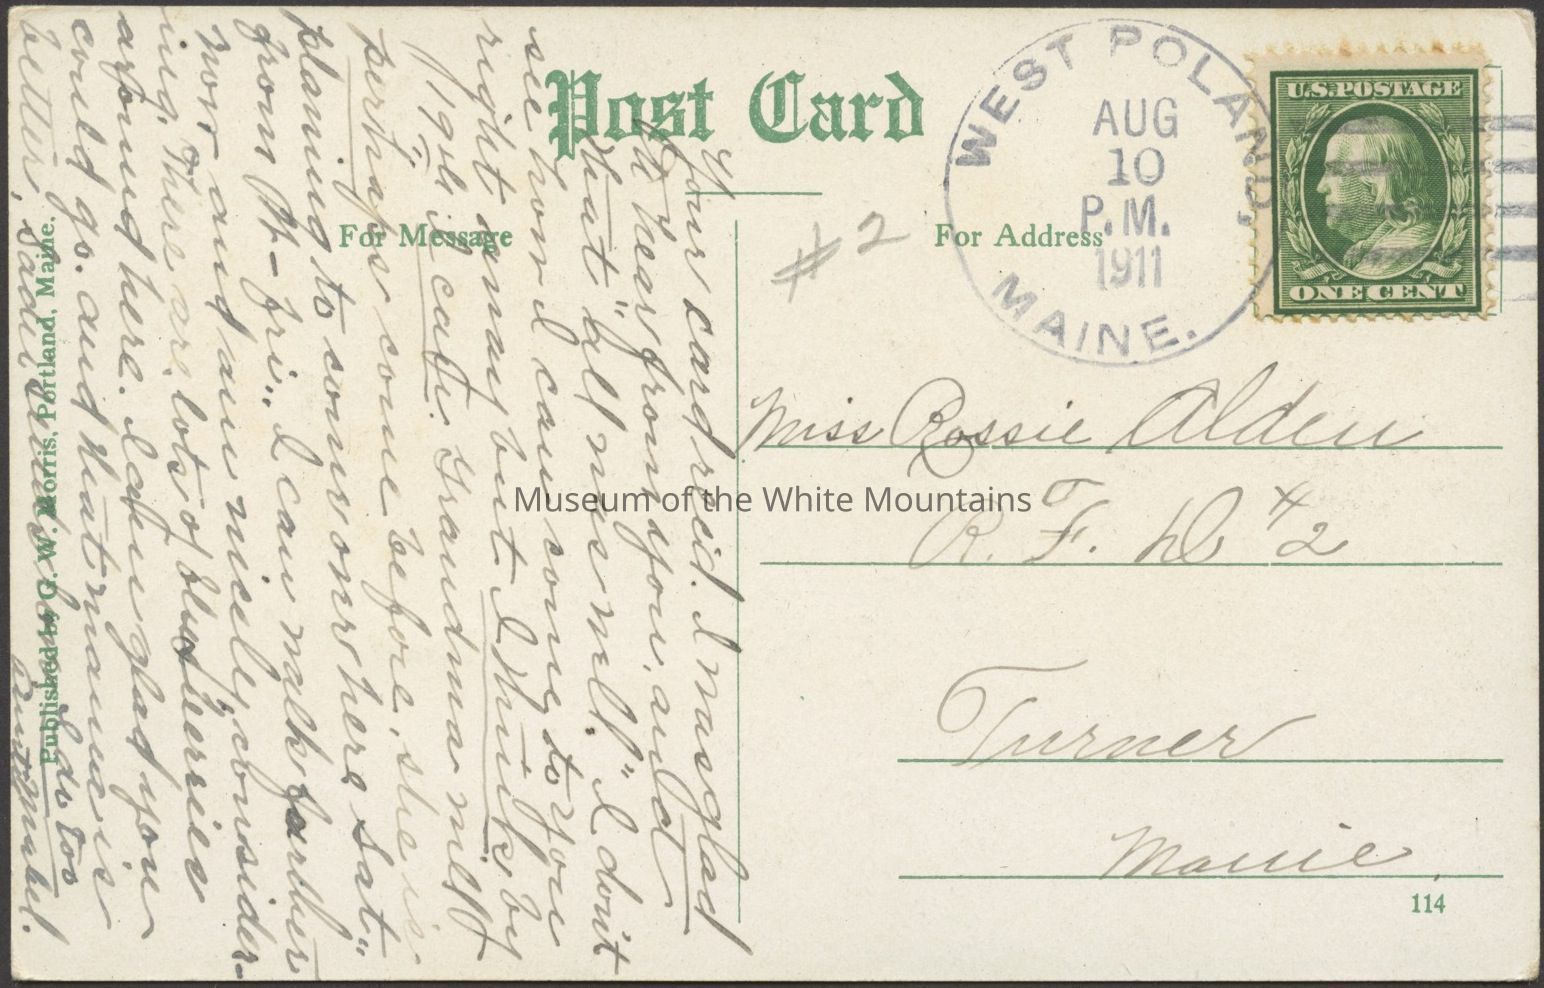 Post Card
For Message
For Address
WEST POLAND
AUG
10
P.M.
1911
MAINE.
U.S. POSTAGE
ONE CENT
#2
Miss Rossie Alden
R. F. D #2
Turner
Maine
114
Museum of the White Mountains
Published by G. W. Morris, Portland, Maine.
Your card rec'd. I was glad
to hear from you, and
that "all was well" I don't
see how I can come to you
right away but I think, by
19th i can. Grandma will
perhaps come before, she is
planing to come over here sat"
from A- fri". I can walk farther
now and am nicely, consider-
ing. There are lots of blue berries
around here. glad you
could go. and that mama is
better,
do too
Aunt Mabel.